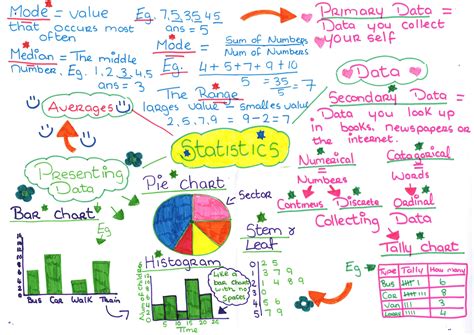 Mode = value
that occurs most
often
Eg. 7,5,35,45
ans = 5
Median = The middle
number. Eg. 1,2,3,4,5
ans = 3
Mode = Sum of Numbers
Num of Numbers
Eg. 4+5+7+9+10
5 = 35/5 = 7
The Range
larges value - smalles value
2,5,7,9 = 9-2=7
Averages
Statistics
Primary Data =
Data you collect
your self
Data
Secondary Data =
Data you look up
in books, newspapers or
the internet.
Numerical
=
Numbers
Catagorical
=
Words
Contineus
Discrete
Ordinal
Collecting Data
Tally chart
Eg
Type Tally How many
Bus 6
Car 8
van 3
Lorrey 4
Presenting
Data
Bar chart
Eg
Bus Car Walk Train
Pie chart
Sector
Histogram
Like a
bar chart
with no
spaces
5 10 15 20 25
Time
Stem &
Leaf
0 2 5
1 3 7 9
2 1 4 8 9
3
4
5